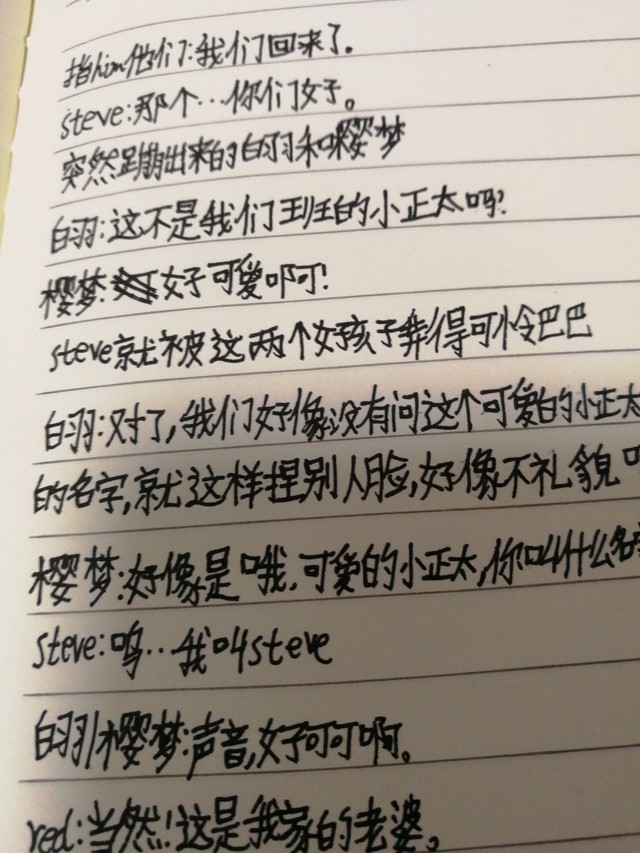 指him他们:我们回来了。
steve:那个…你们好。
突然蹦出来的白羽和樱梦
白羽:这不是我们班的小正太吗?
樱梦:好可爱啊!
steve就被这两个女孩子弄得可怜巴巴
白羽:对了,我们好像没有问这个可爱的小正太
的名字,就这样捏别人脸,好像不礼貌
樱梦:好像是哦.可爱的小正太,你叫什么名
steve:呜…我叫steve
白羽/樱梦:声音,好可可啊。
red:当然!这是我家的老婆。